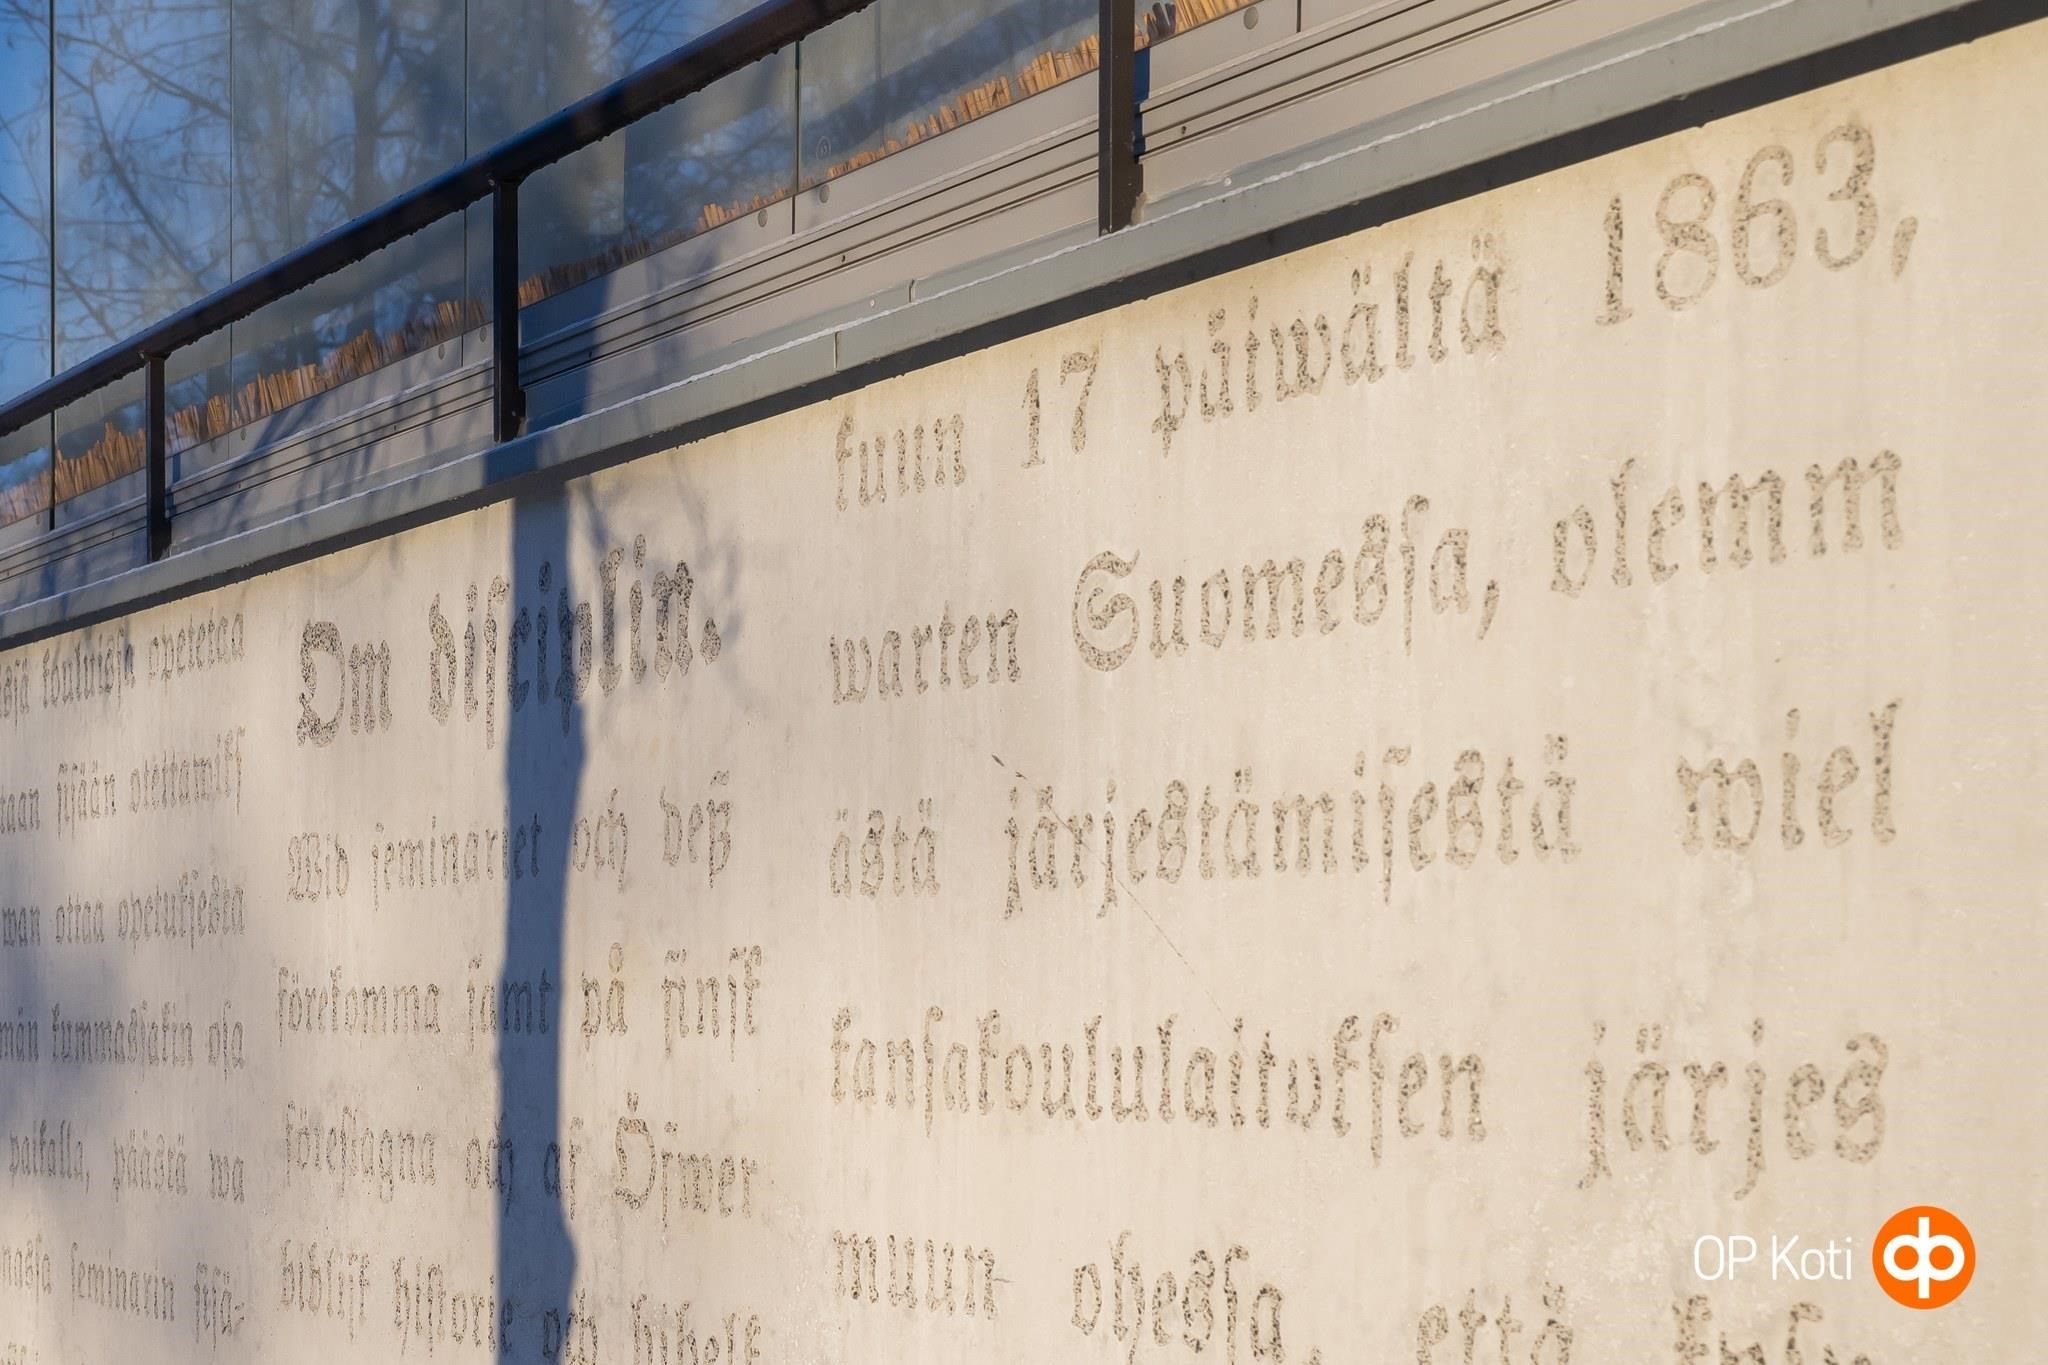 kouluissa opetetaa
taan sisään otettawiks
wan ottaa opetuksesta
män kummassakin osa
paikalla, päästä wa
nassa seminarin sisä-
Om disciplin.
Wid seminariet och deß
förekomma samt på finsk
föreslagna och af Öfwer
biblisk historie och
kuun 17 päiwältä 1863,
warten Suomessa, olemm
ästä järjestämisestä wiel
kansakoululaituksen järjes
muun ohessa, että
OP Koti